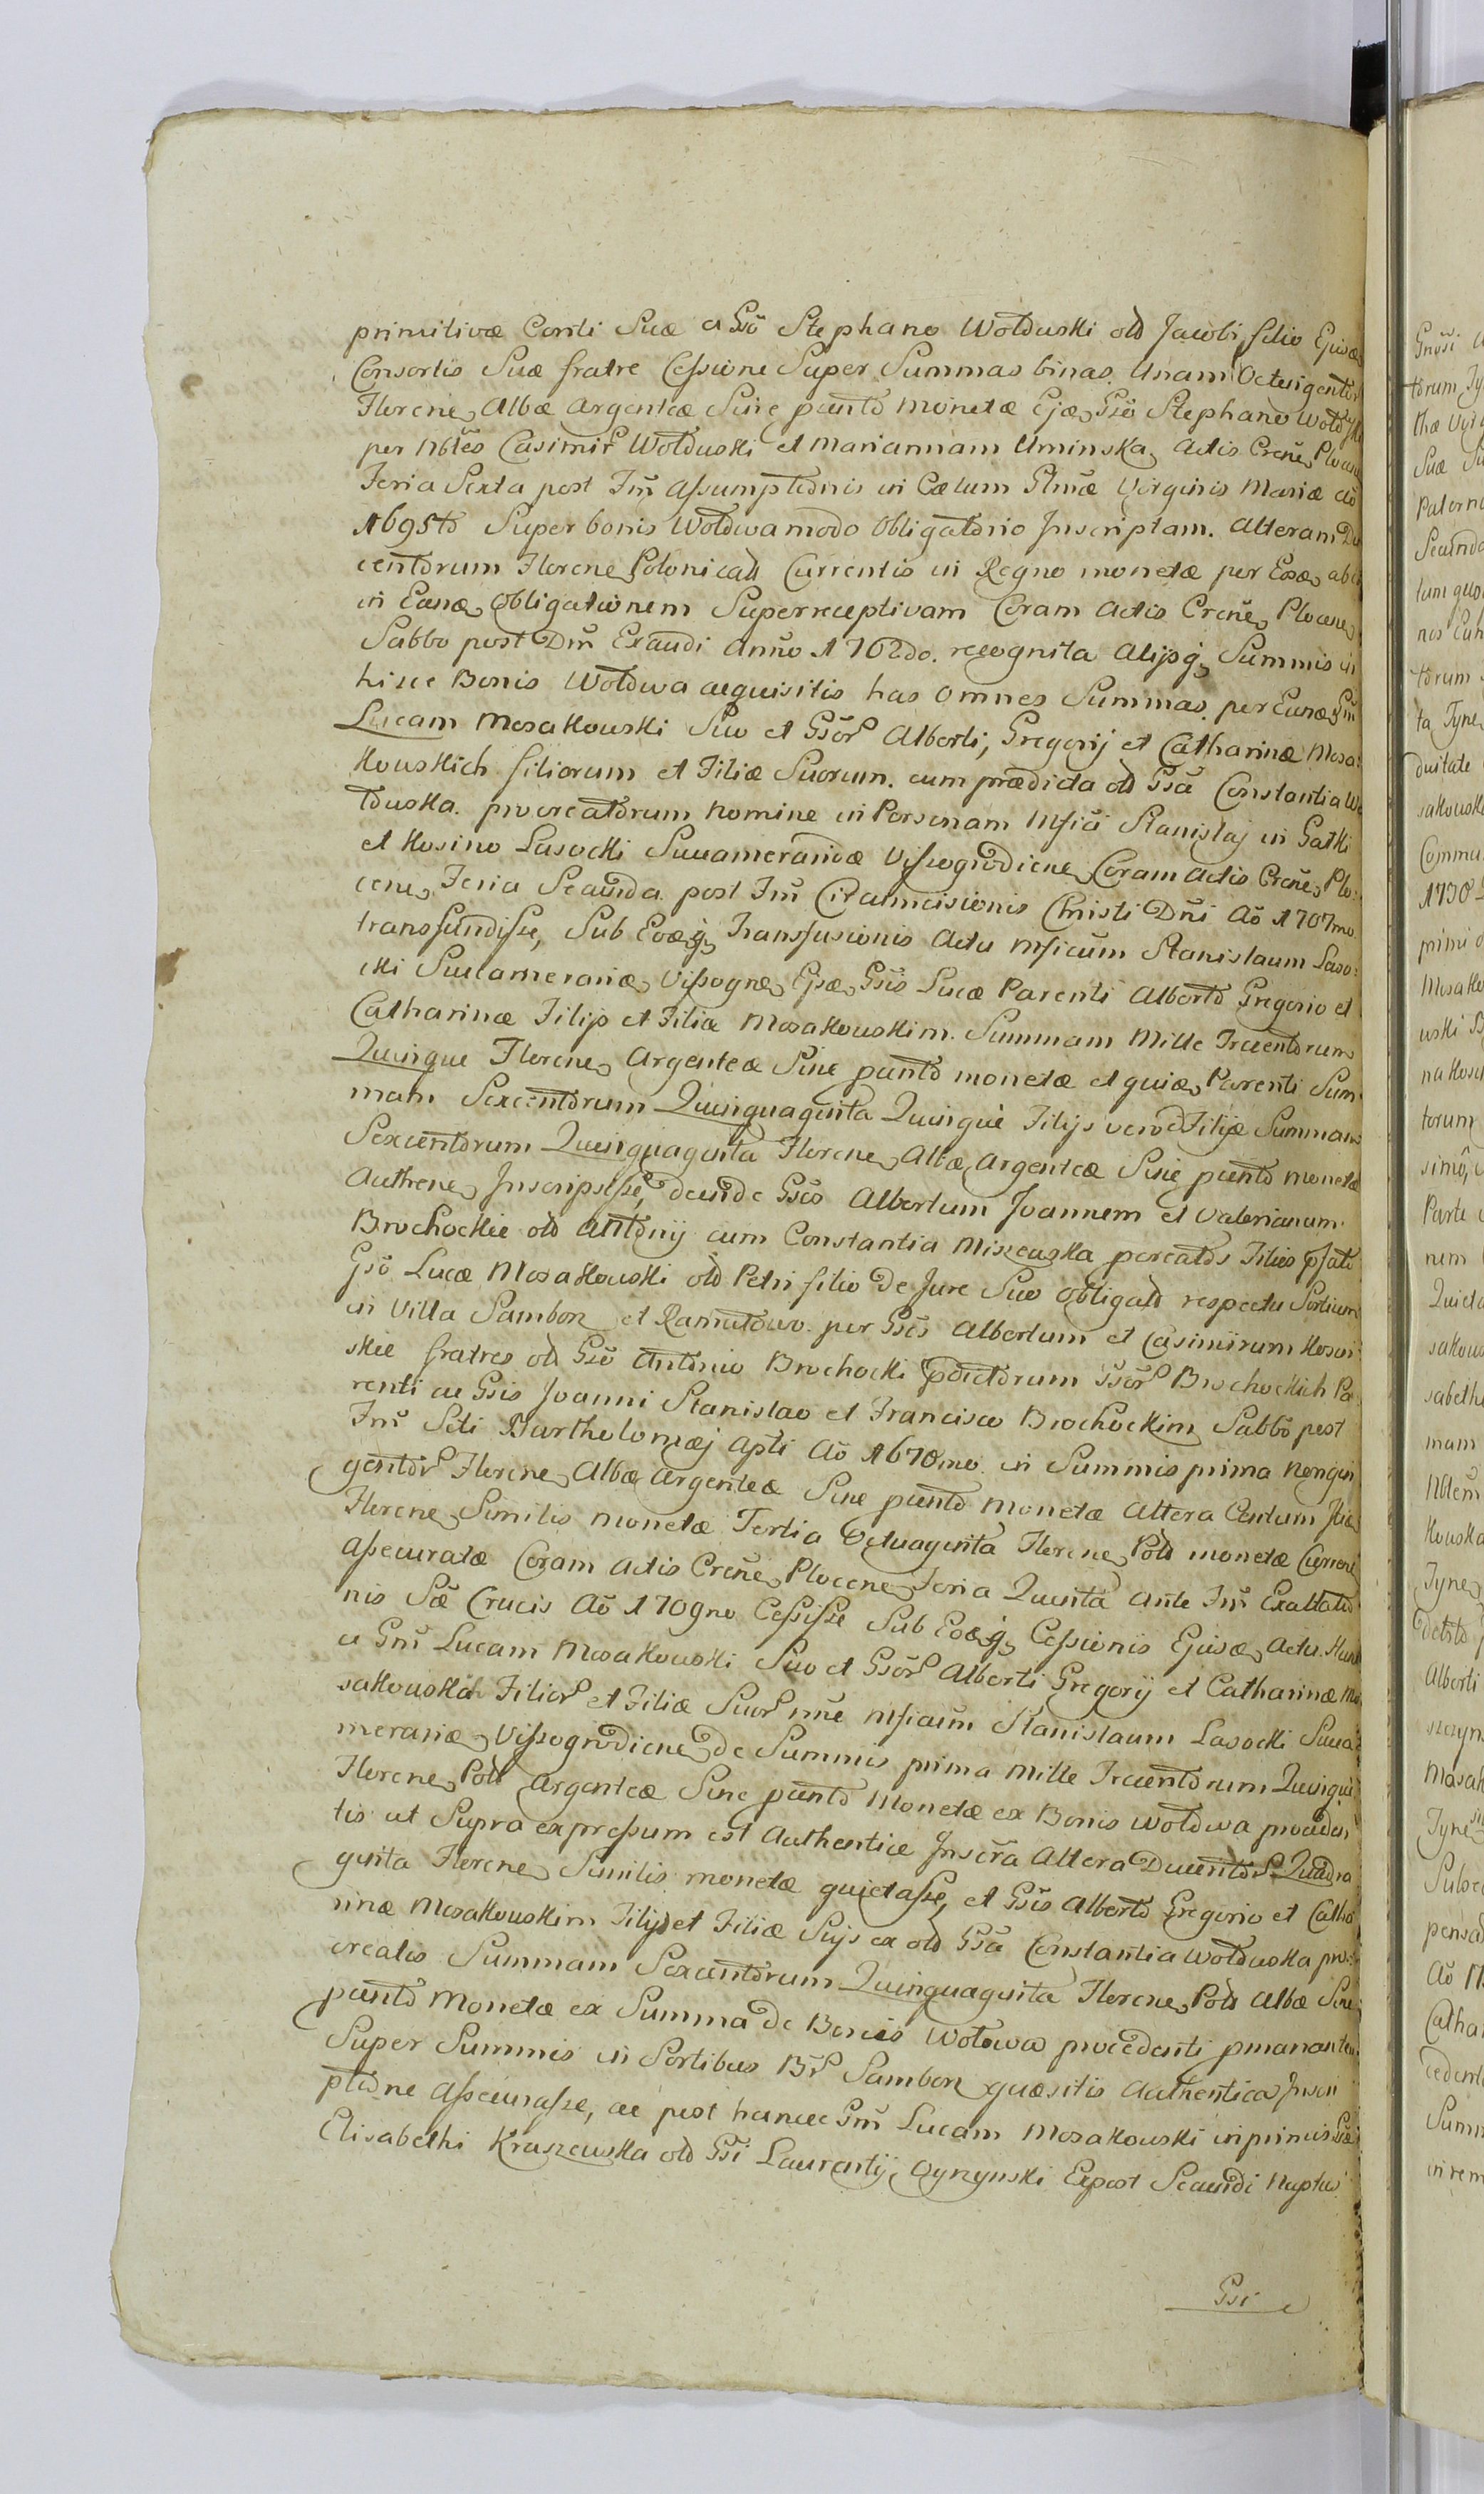 primitivæ Conti Suæ a Gsõ Stephano Wołduski old Jacobi filio Ejusd
Consortis Suæ fratre Cessione Super Summas binas. Unam Octuigentor
Florene, Albæ Argenteæ Sine puncto Monetæ Ejæ, Gsõ Stephano Wołduski
per Nbłes Casimir Wołduski et Mariannam Uminska, Actis Crcñe, Plocen
Feria Sexta post Fm̃ Assumptionis in Cælum Glmæ Virginis Mariæ Aõ
1695to Super bonis Wołdwa modo Obligatorio Inscriptam. Alteram Du
centorum Florene, Polonicall Currentis in Regno monetæ per Eosæ, ab
in Eanæ, Obligationem Superreceptivam Coram Actis Crcñe, Plocene,
Sabbo post Dm̃ Exaudi Anño 1702do. recognita Alijsq, Summis in
hisce Bonis Wołdwa acquisitis has omnes Summas. per Eunæ, Gm̃
Lucam Mosakowski Suo et Gsor Alberti, Gregorij et Catharinæ Mosa:
kowskich filiorum et Filiæ Suorum. cum prædicta old Gsa Constantia Wo
łduska. procreatorum nomine in Personam Mfici Stanislaj in Gałki
et Kosino Lasocki Succamerariæ Vissogrodiene, Coram Actis Crcñe, Plo:
cene, Feria Secunda post Fm̃ Circumcisionis Christi Dñi Aõ 1707mo
transfundisse, Sub Eoæq, Transfusionis Actu Mficum Stanislaum Laso:
cki Succamerariæ, Vissogræ, Ejæ, Gsis Lucæ Parenti Alberto Gregorio et
Catharinæ Filijs et Filiæ Mosakowskim. Summam Mille Trecentorum
Quinque Florene, Argenteæ Sine puncto monetæ et quiæ, Parenti Sum
mam Sexcentorum Quinquaginta Quinque Filijs vero et Filiæ Summam
Sexcentorum Quinquaginta Florene, Albæ, Argenteæ Sine puncto monetæ
Authene, Inscripsisse, deinde Gsos Albertum Joannem et Valerianum
Brochockie old Antonij cum Constantia Miszewska porcatos Filios pfato
Gsõ Lucæ Mosakowski old Petri filio De Jure Suo Obligato respectu Sortium
in Villa Sambor et Ramutowo. per Gsos Albertum et Casimirum Kosoi
skie fratres old Gsõ Antonio Brochocki pdictorum Gsor Brochockich Pa
renti ac Gsis Joanni Stanislao et Francisco Brochockim Sabbo post
Fm̃ Scti Bartholomæj Apti Aõ 1670mo in Summis prima Nongin
gentor Florene, Albæ Argenteæ Sine puncto Monetæ Altera Centum
Florene, Similis Monetæ Tertia Octuaginta Florene, Pold monetæ Curren
Assecuratæ Coram Actis Crcñe, Plocene, Feria Quinta Ante Fm̃ Exaltatio
nis Sæ Crucis Aõ 1709no Cessisse Sub Eoæq, Cessionis Ejusæ, Actu Hunc
ce Gm̃ Lucam Mosakowski Suo et Gsor Alberti Gregorij et Catharinæ Mo
sakowskich Filior et Filiæ Suor nne Mficum Stanislaum Lasocki Succa
merariæ, Vissogrodiene, De Summis prima Mille Trecentorum Quinque
Florene, Pold Argenteæ Sine puncto Monetæ ex Bonis Wołdwa proceden
tis ut Supra expressum est Authentice Inscra Altera Ducentor Quadra
ginta Florene, Similis monetæ quietasse, et Gsis Alberto Gregorio et Catha
rinæ Mosakowskim Filijs et Filiæ Suis ex old Gsa Constantia Wołduska pro:
creatis Summam Sexcentorum Quinquaginta Florene, Pold Albæ Sine
puncto Monetæ ex Summa De Bonis Wołdwa procedenti pmanantem
Super Summis in Sortibus Br Sambor quæsitis Authentica Inscri
ptione Assecurasse, ac post hancce Gm̃ Lucam Mosakowski inprimis Gsæ
Elisabethi Kraszewska old Gsi Laurentij Ożynski Expost Secundi Nuptus
Gsi